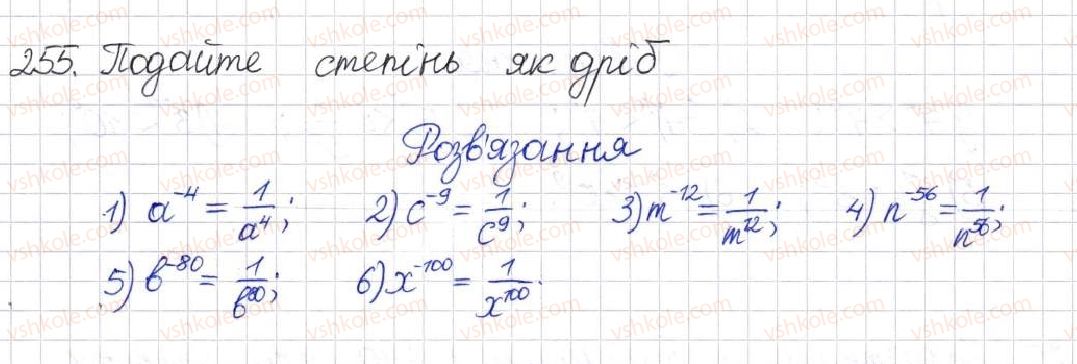 255. Подайте степінь як дріб
Розв'язання
1) a^{-4} = \frac{1}{a^4}; 2) c^{-9} = \frac{1}{c^9}; 3) m^{-12} = \frac{1}{m^{12}}; 4) n^{-56} = \frac{1}{n^{56}};
5) b^{-80} = \frac{1}{b^{80}}; 6) x^{-100} = \frac{1}{x^{100}}.